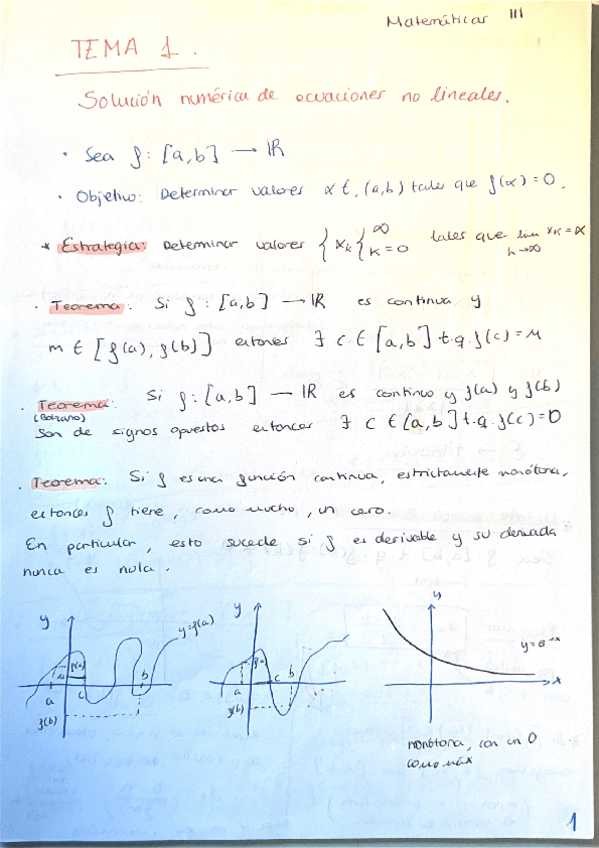 Matemáticas III
TEMA 1.
Solución numérica de ecuaciones no lineales.
· Sea f: [a,b] → IR
· Objetivo: Determinar valores α ∈ (a,b) tales que f(α)=0.
* Estrategia: Determinar valores {xₖ}^∞_{k=0} tales que lim_{n→∞} xₖ = α
· Teorema: Si f: [a,b] → IR es continua y
m ∈ [f(a), f(b)] entonces ∃ c ∈ [a,b] t.q. f(c) = m
· Teorema: Si f: [a,b] — IR es continuo y f(a) y f(b)
(Bolzano)
Son de signos opuestos entonces ∃ c ∈ [a,b] t.q. f(c)=0
· Teorema: Si f es una función continua, estrictamente monótona,
entonces f tiene, como mucho, un cero.
En particular, esto sucede si f es derivable y su derivada
nunca es nula.
y
y=f(a)
f(a)
a
c
b
f(b)
y
a
c
b
f(b)
y
y=e⁻ˣ
x
monótona, con un 0
como máx
1